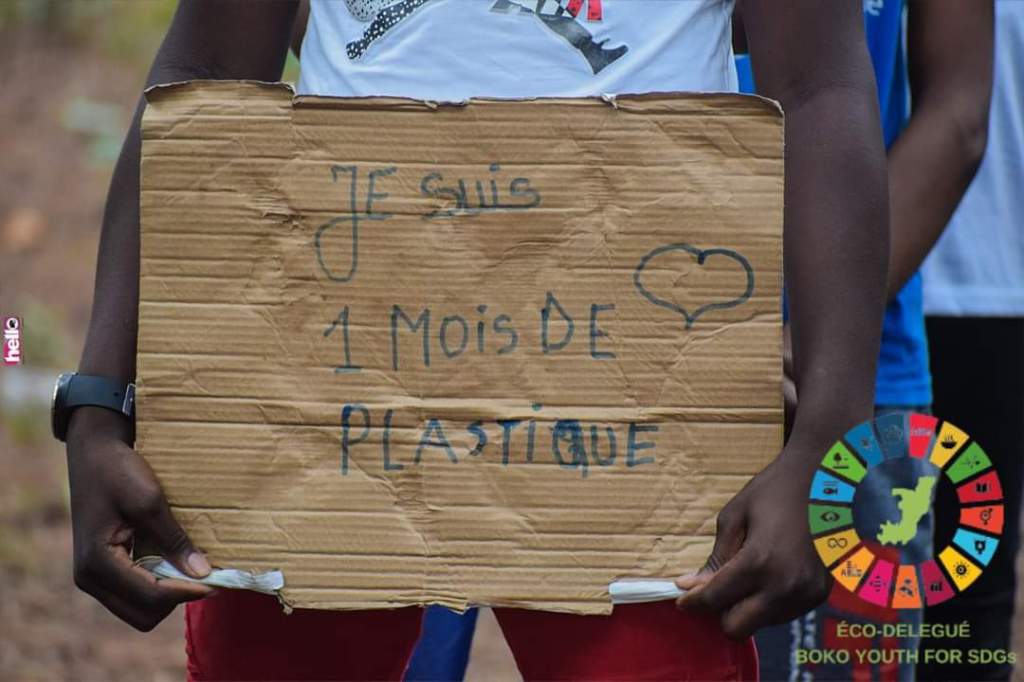 JE suis
1 MOis DE
PLASTIQUE
hello
ÉCO-DELEGUÉ
BOKO YOUTH FOR SDGs